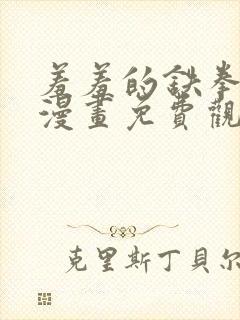 羞羞的鉄拳
漫畫免費觀
克里斯丁貝尔